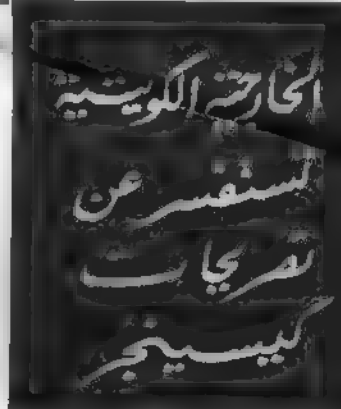 الخارجية الكويتية
تستفسر عن
تصريحات
كيسنجر